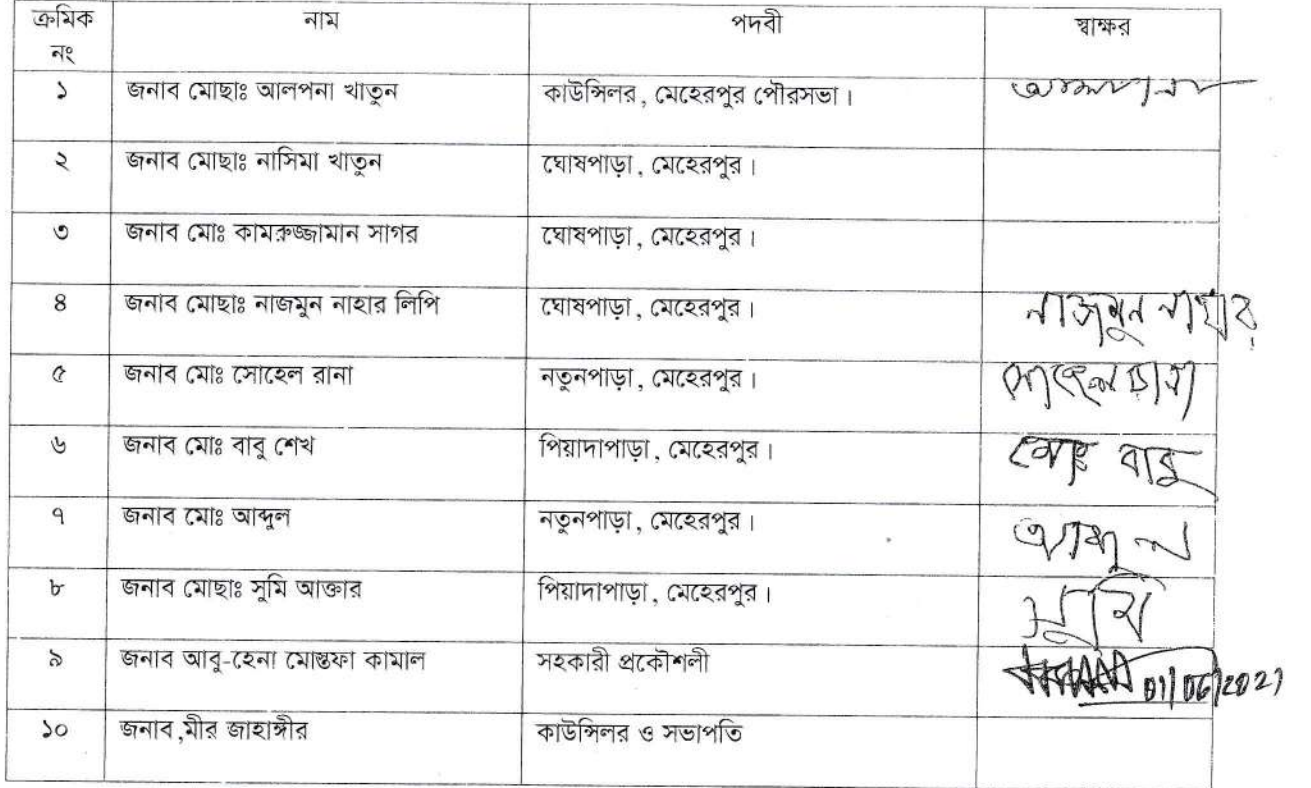 ক্রমিক নং নাম পদবী স্বাক্ষর
১ জনাব মোছাঃ আলপনা খাতুন কাউন্সিলর, মেহেরপুর পৌরসভা। আলপনা
২ জনাব মোছাঃ নাসিমা খাতুন ঘোষপাড়া, মেহেরপুর।
৩ জনাব মোঃ কামরুজ্জামান সাগর ঘোষপাড়া, মেহেরপুর।
৪ জনাব মোছাঃ নাজমুন নাহার লিপি ঘোষপাড়া, মেহেরপুর। নাজমুন নাহার
৫ জনাব মোঃ সোহেল রানা নতুনপাড়া, মেহেরপুর। সোহেল রানা
৬ জনাব মোঃ বাবু শেখ পিয়াদাপাড়া, মেহেরপুর। মোঃ বাবু
৭ জনাব মোঃ আব্দুল নতুনপাড়া, মেহেরপুর। আব্দুল
৮ জনাব মোছাঃ সুমি আক্তার পিয়াদাপাড়া, মেহেরপুর। সুমি
৯ জনাব আবু-হেনা মোস্তফা কামাল সহকারী প্রকৌশলী 01/06/2021
১০ জনাব,মীর জাহাঙ্গীর কাউন্সিলর ও সভাপতি